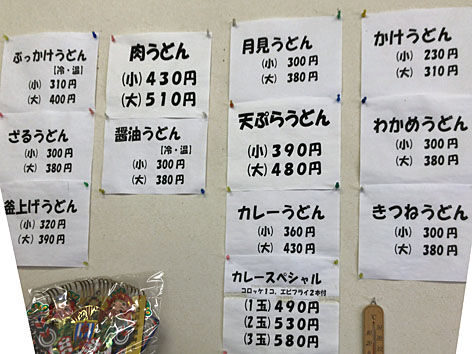 ぶっかけうどん
【冷・温】
(小) 310円
(大) 400円
ざるうどん
(小) 300円
(大) 380円
釜上げうどん
(小) 320円
(大) 390円
肉うどん
(小) 430円
(大) 510円
醤油うどん
【冷・温】
(小) 300円
(大) 380円
月見うどん
(小) 300円
(大) 380円
天ぷらうどん
(小) 390円
(大) 480円
カレーうどん
(小) 360円
(大) 430円
カレースペシャル
コロッケ1コ、エビフライ2本付
(1玉) 490円
(2玉) 530円
(3玉) 580円
かけうどん
(小) 230円
(大) 310円
わかめうどん
(小) 300円
(大) 380円
きつねうどん
(小) 300円
(大) 380円